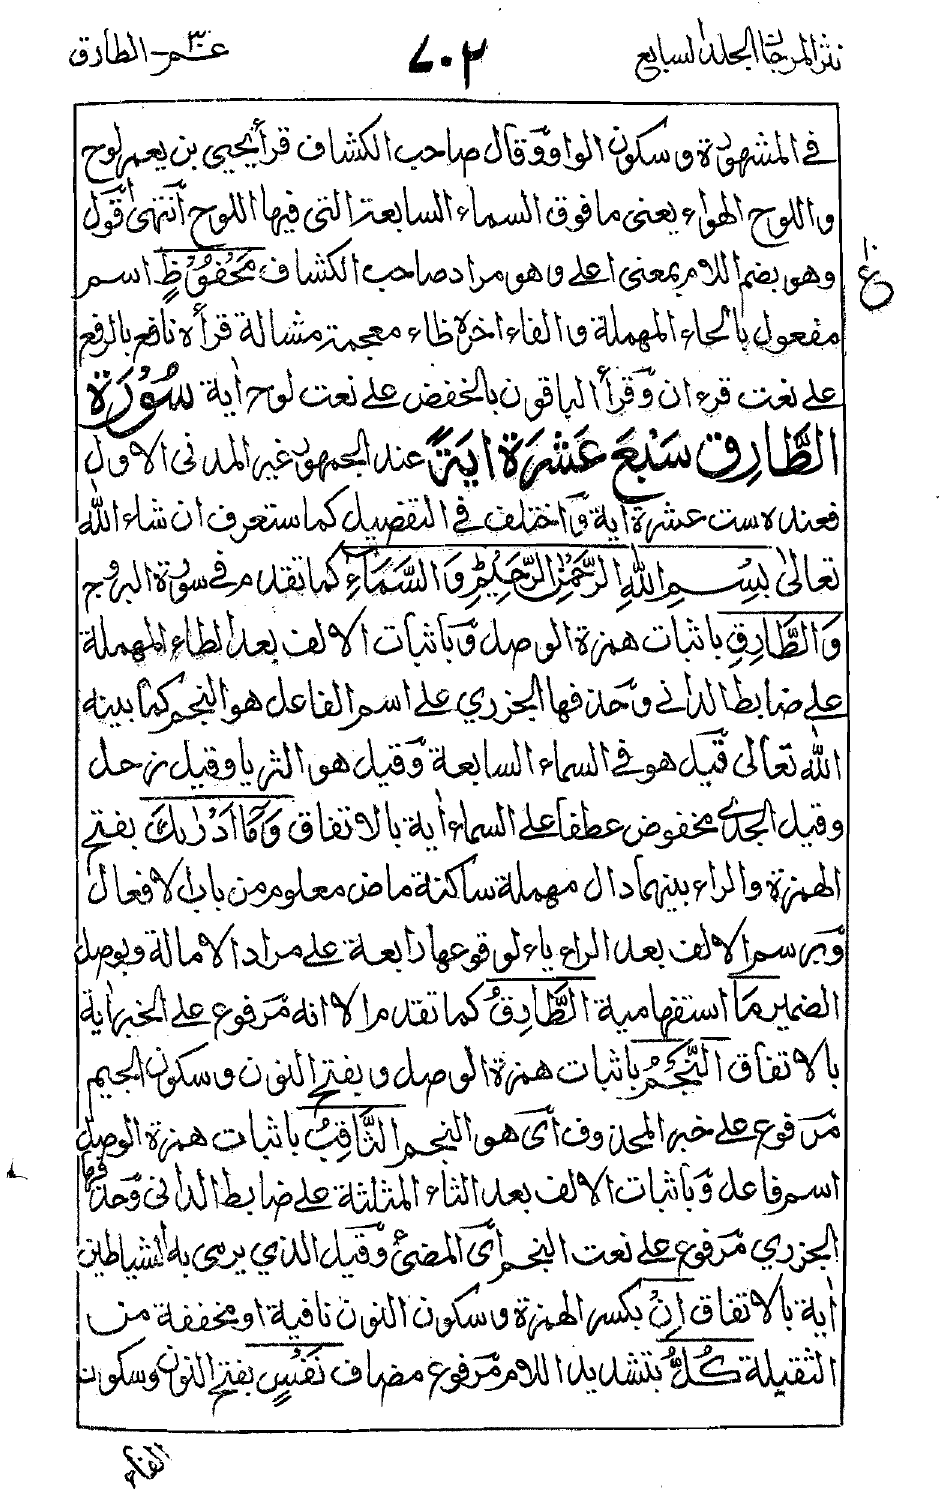 نثر المرجان الجلد السابع
٧٠٢
عم ٣٠ - الطارق
في المشهورة وسكون الواو وقال صاحب الكشاف قرأ يحيى بن يعمر لوح
واللوح الهواء يعنى ما فوق السماء السابعة التى فيها اللوح أنتهى أقول
وهو بضم اللام بمعنى اعلى وهو مراد صاحب الكشاف مَحْفُوْظٍ اسم
مفعول بالحاء المهملة والفاء اخره ظاء معجمة مشالة قرأه نافع بالرفع
على نعت قرءان وقرأ الباقون بالخفض على نعت لوح أية سُوْرَة
الطَّارِق سَبْعَ عَشْرَةَ ايَةً عند الجمهور غير المدنى الاول
فعنده ست عشرة اية واختلف في التفصيل كما ستعرف ان شاء الله
تعالى بِسْمِ اللهِ الرَّحْمٰنِ الرَّحِيْمِ وَالسَّمَاءِ كما تقدم في سورة البروج
وَالطَّارِقِ باثبات همزة الوصل وباثبات الالف بعد الطاء المهملة
على ضابط الدانى وحذفها الجزري على اسم الفاعل هو النجم كما بينه
الله تعالى قيل هو فى السماء السابعة وقيل هو الثريا وقيل زحل
وقيل الجدي مخفوض عطفا على السماء أية بالاتفاق وَمَا اَدْرٰىكَ بفتح
الهمزة والراء بينهما دال مهملة ساكنة ماض معلوم من باب الافعال
ويرسم الالف بعد الراء ياء لوقوعها رابعة على مراد الامالة وبوصل
الضمير مَا استفهامية الطَّارِقُ كما تقدم الا انه مرفوع على الخبر أية
بالاتفاق النَّجْمُ باثبات همزة الوصل وبفتح النون وسكون الجيم
مرفوع على خبر المحذوف أى هو النجم الثَّاقِبُ باثبات همزة الوصل
اسم فاعل وباثبات الالف بعد الثاء المثلثة على ضابط الدانى وحذفها
الجزري مرفوع على نعت النجم أى المضئ وقيل الذي يرمى به الشياطين
أية بالاتفاق اِنْ بكسر الهمزة وسكون النون نافية او مخففة من
الثقيلة كُلُّ بتشديد اللام مرفوع مضاف نَفْسٍ بفتح النون وسكون
الفاء